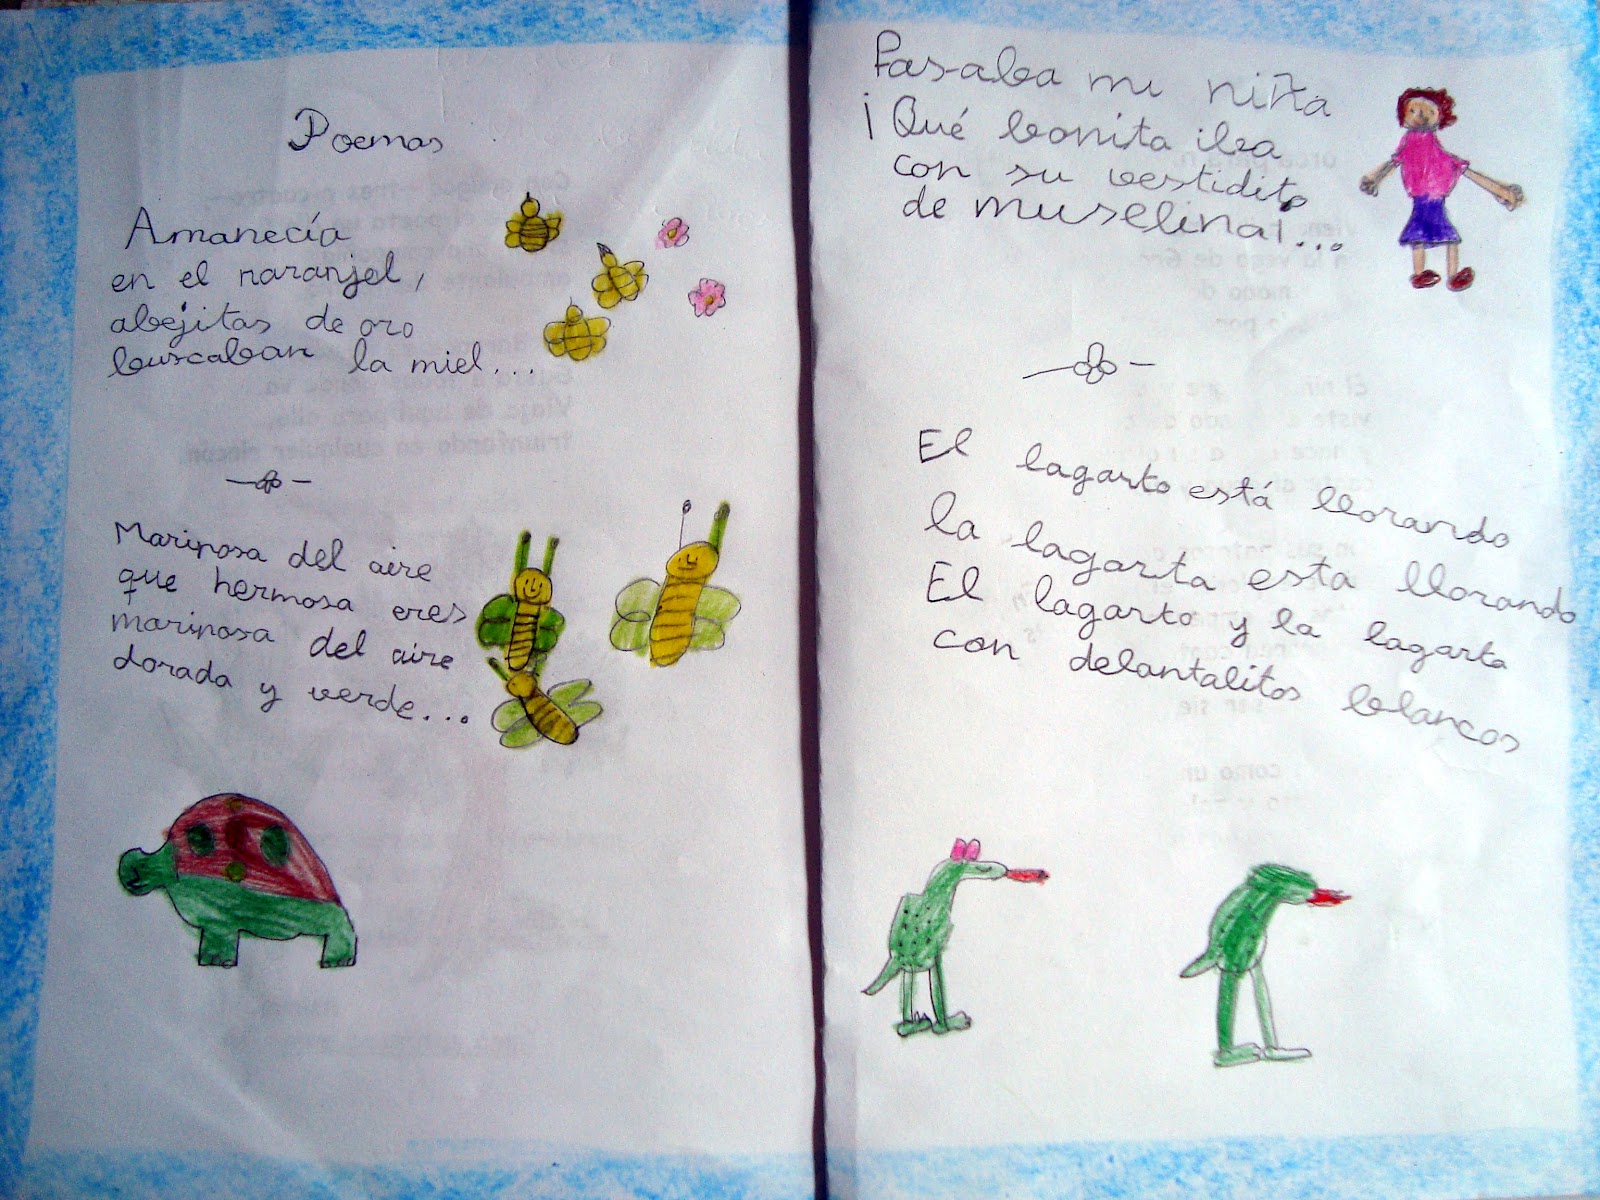 Poemas
Amanecía
en el naranjel,
abejitas de oro
buscaban la miel...
Mariposa del aire
que hermosa eres
mariposa del aire
dorada y verde...
Pasaba mi niña
¡Qué bonita iba
con su vestidito
de muselina¡...
El lagarto está llorando
la lagarta esta llorando
El lagarto y la lagarta
con delantalitos blancos